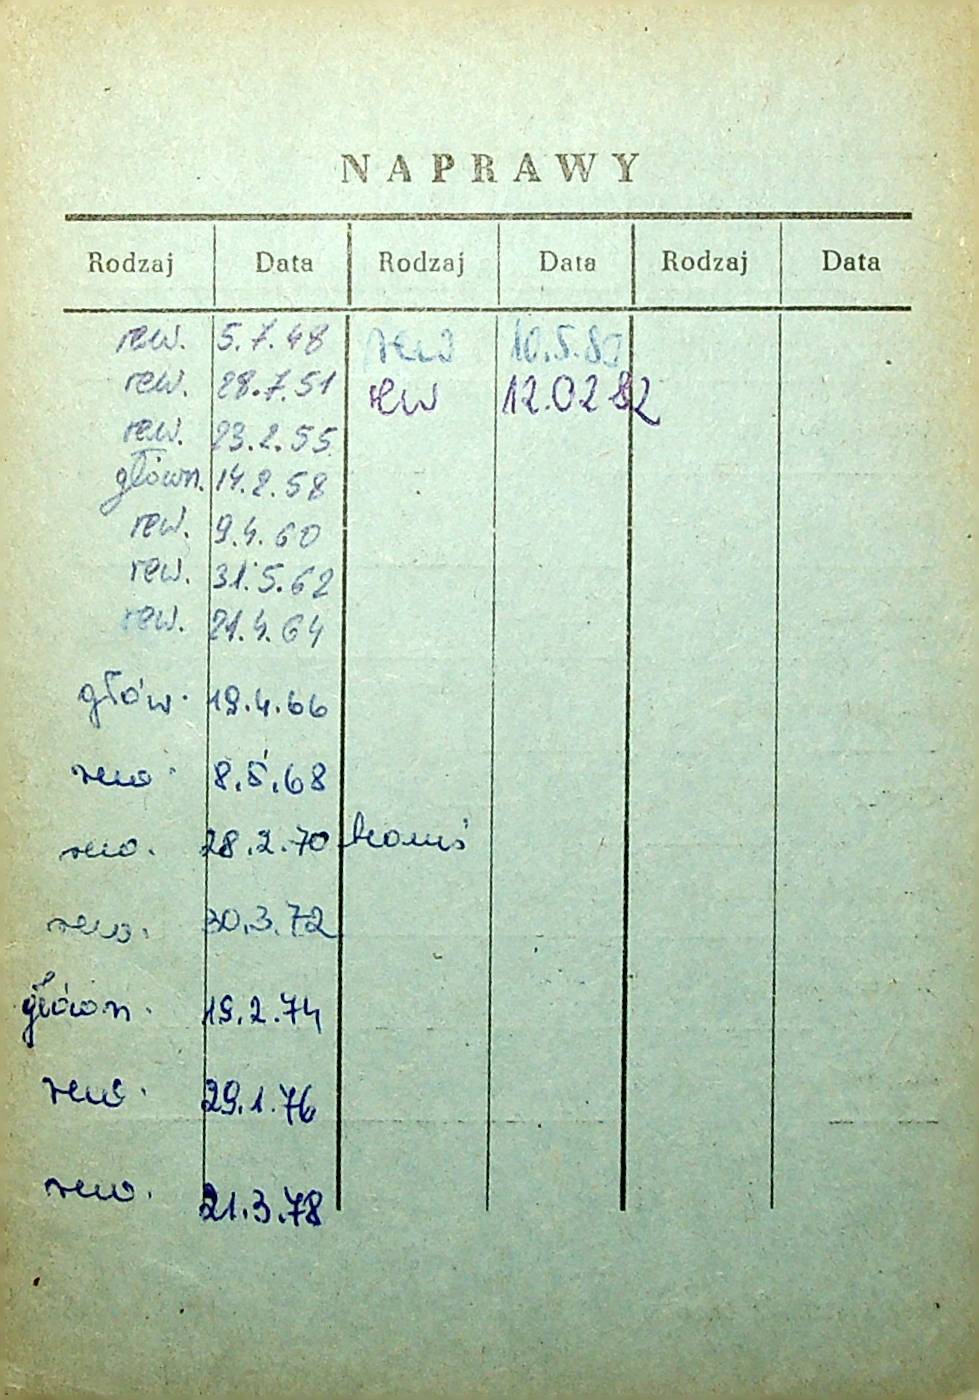 NAPRAWY
Rodzaj Data Rodzaj Data Rodzaj Data
rew. 5.7.48 rew 10.5.80
rew. 28.7.51 rew 12.02 82
rew. 23.2.55
główn. 14.2.58
rew. 9.4.60
rew. 31.5.62
rew. 21.4.64
głów. 19.4.66
rew. 8.5.68
rew. 28.2.70
rew. 30.3.72
główn. 19.2.74
rew. 29.1.76
rew. 21.3.78